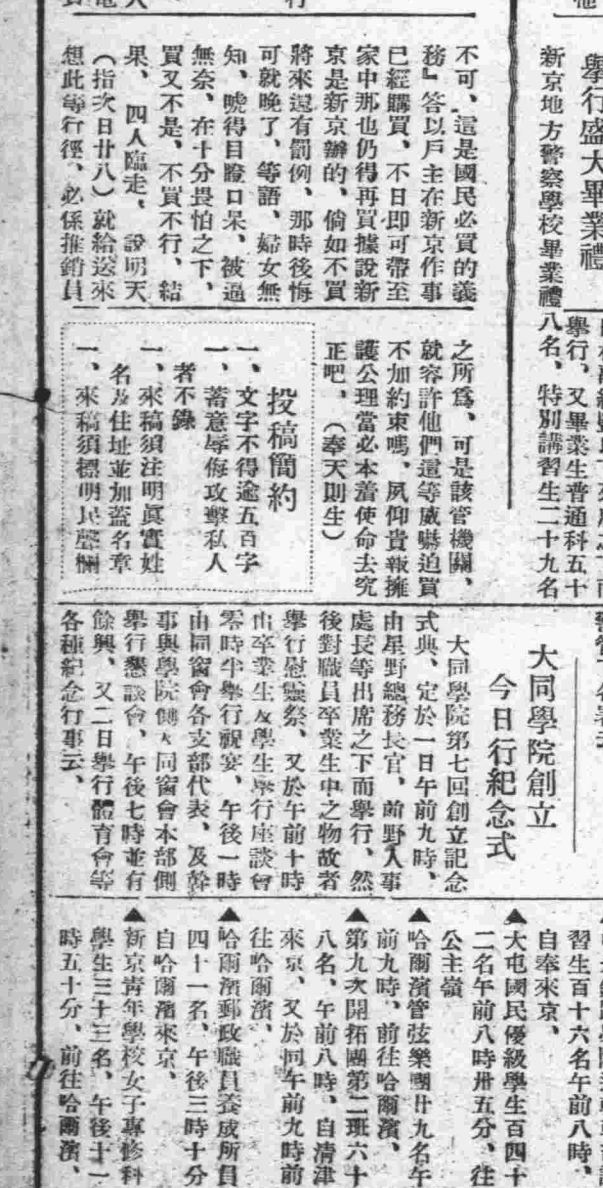 舉行盛大畢業禮
新京地方警察學校畢業禮
舉行、又畢業生普通科五十
八名、特別講習生二十九名
不可、這是國民必買的義
務』答以戶主在新京作事
已經購買、不日即可帶至
家中那也仍得再買據說新
京是新京辦的、倘如不買
將來還有罰例、那時後悔
可就晚了、等語、婦女無
知、唬得目瞪口呆、被逼
無奈、在十分畏怕之下、
買又不是、不買不行、結
果、四人臨走、說明天
（指次日廿八）就給送來
想此等行徑、必係推銷員
之所爲、可是該管機關、
就容許他們這等威嚇迫買
不加約束嗎、夙仰貴報擁
護公理當必本着使命去究
正吧、（奉天則生）
投稿簡約
一、文字不得逾五百字
一、蓄意辱侮攻擊私人
者不錄
一、來稿須注明眞實姓
名及住址並加蓋名章
一、來稿須標明民聲欄
大同學院創立
今日行紀念式
大同學院第七回創立記念
式典、定於一日午前九時、
由星野總務長官、前野人事
處長等出席之下而舉行、然
後對職員卒業生中之物故者
舉行慰靈祭、又於午前十時
由卒業生及學生舉行座談會
零時半舉行祝宴、午後一時
由同窗會各支部代表、及幹
事與學院側及同窗會本部側
舉行懇談會、午後七時並有
餘興、又二日舉行體育會等
各種紀念行事云、
習生百十六名午前八時、
自奉來京、
▲大屯國民優級學生百四十
二名午前八時卅五分、往
公主嶺
▲哈爾濱管弦樂團廿九名午
前九時、前往哈爾濱、
▲第九次開拓團第二班六十
八名、午前八時、自清津
來京、又於同午前九時前
往哈爾濱、
▲哈爾濱郵政職員養成所員
四十一名、午後三時十分
自哈爾濱來京、
▲新京青年學校女子專修科
學生三十三名、午後十一
時五十分、前往哈爾濱、